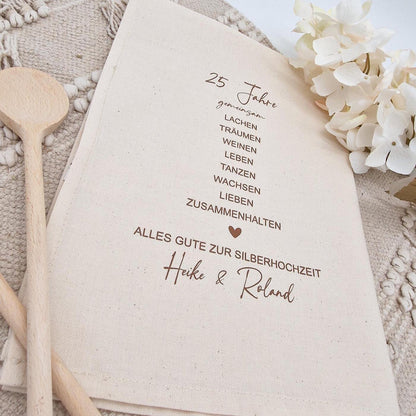 25 Jahre
gemeinsam
LACHEN
TRÄUMEN
WEINEN
LEBEN
TANZEN
WACHSEN
LIEBEN
ZUSAMMENHALTEN
ALLES GUTE ZUR SILBERHOCHZEIT
Heike & Roland